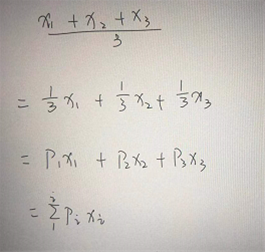 x₁ + x₂ + x₃ / 3
= 1/3 x₁ + 1/3 x₂ + 1/3 x₃
= P₁x₁ + P₂x₂ + P₃x₃
= Σ₁ⁱ Pᵢ xᵢ